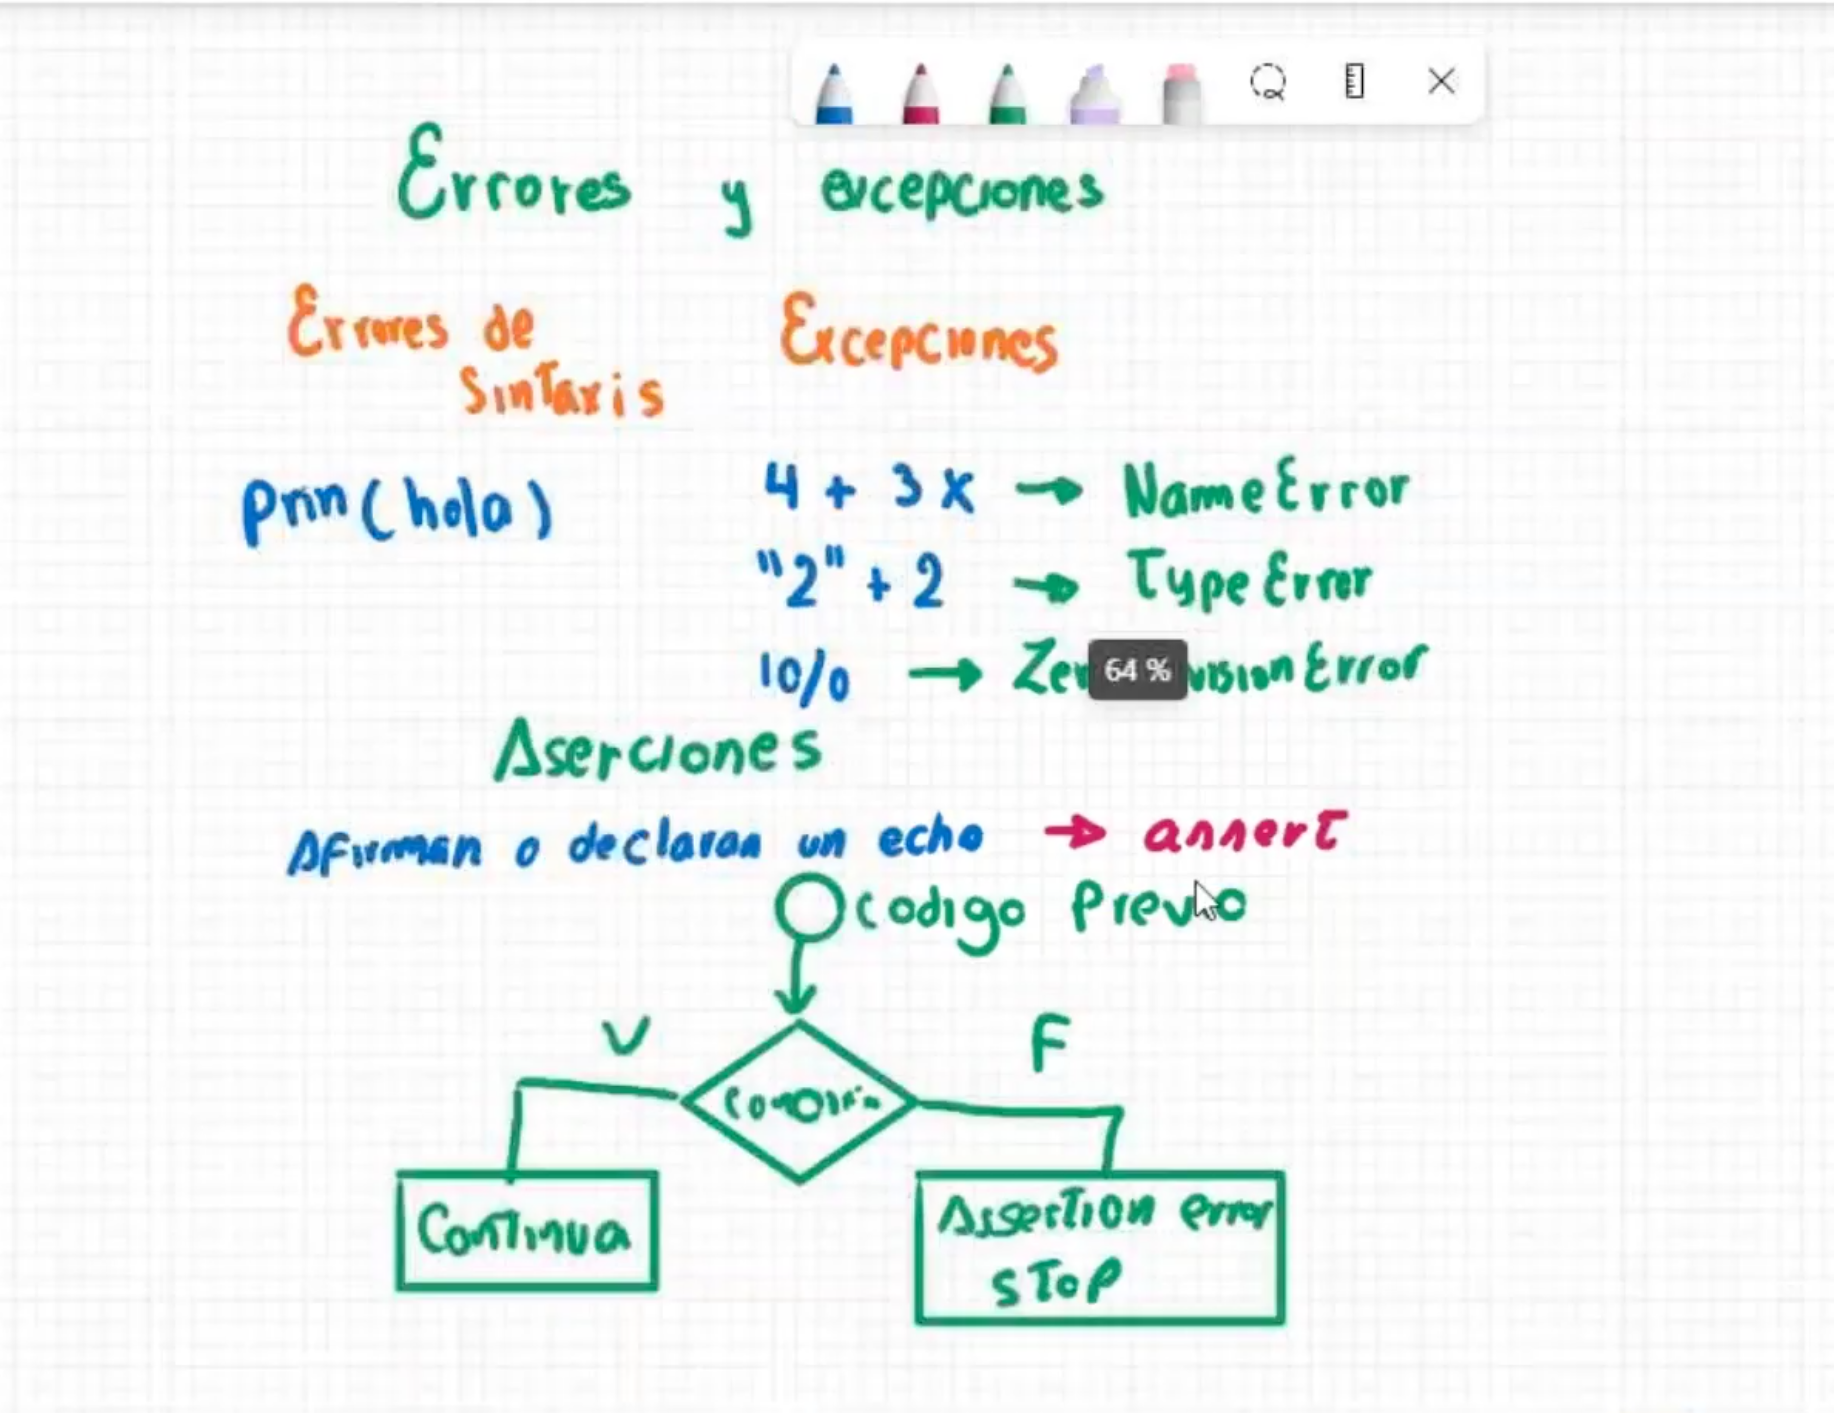 Errores y excepciones
Errores de
Sintaxis
Excepciones
prin(hola)
4 + 3x → NameError
"2" + 2 → TypeError
10/0 → visionError
64 %
Aserciones
Afirman o declaran un echo → assert
codigo Previo
V
F
Continua
Assertion error
STOP